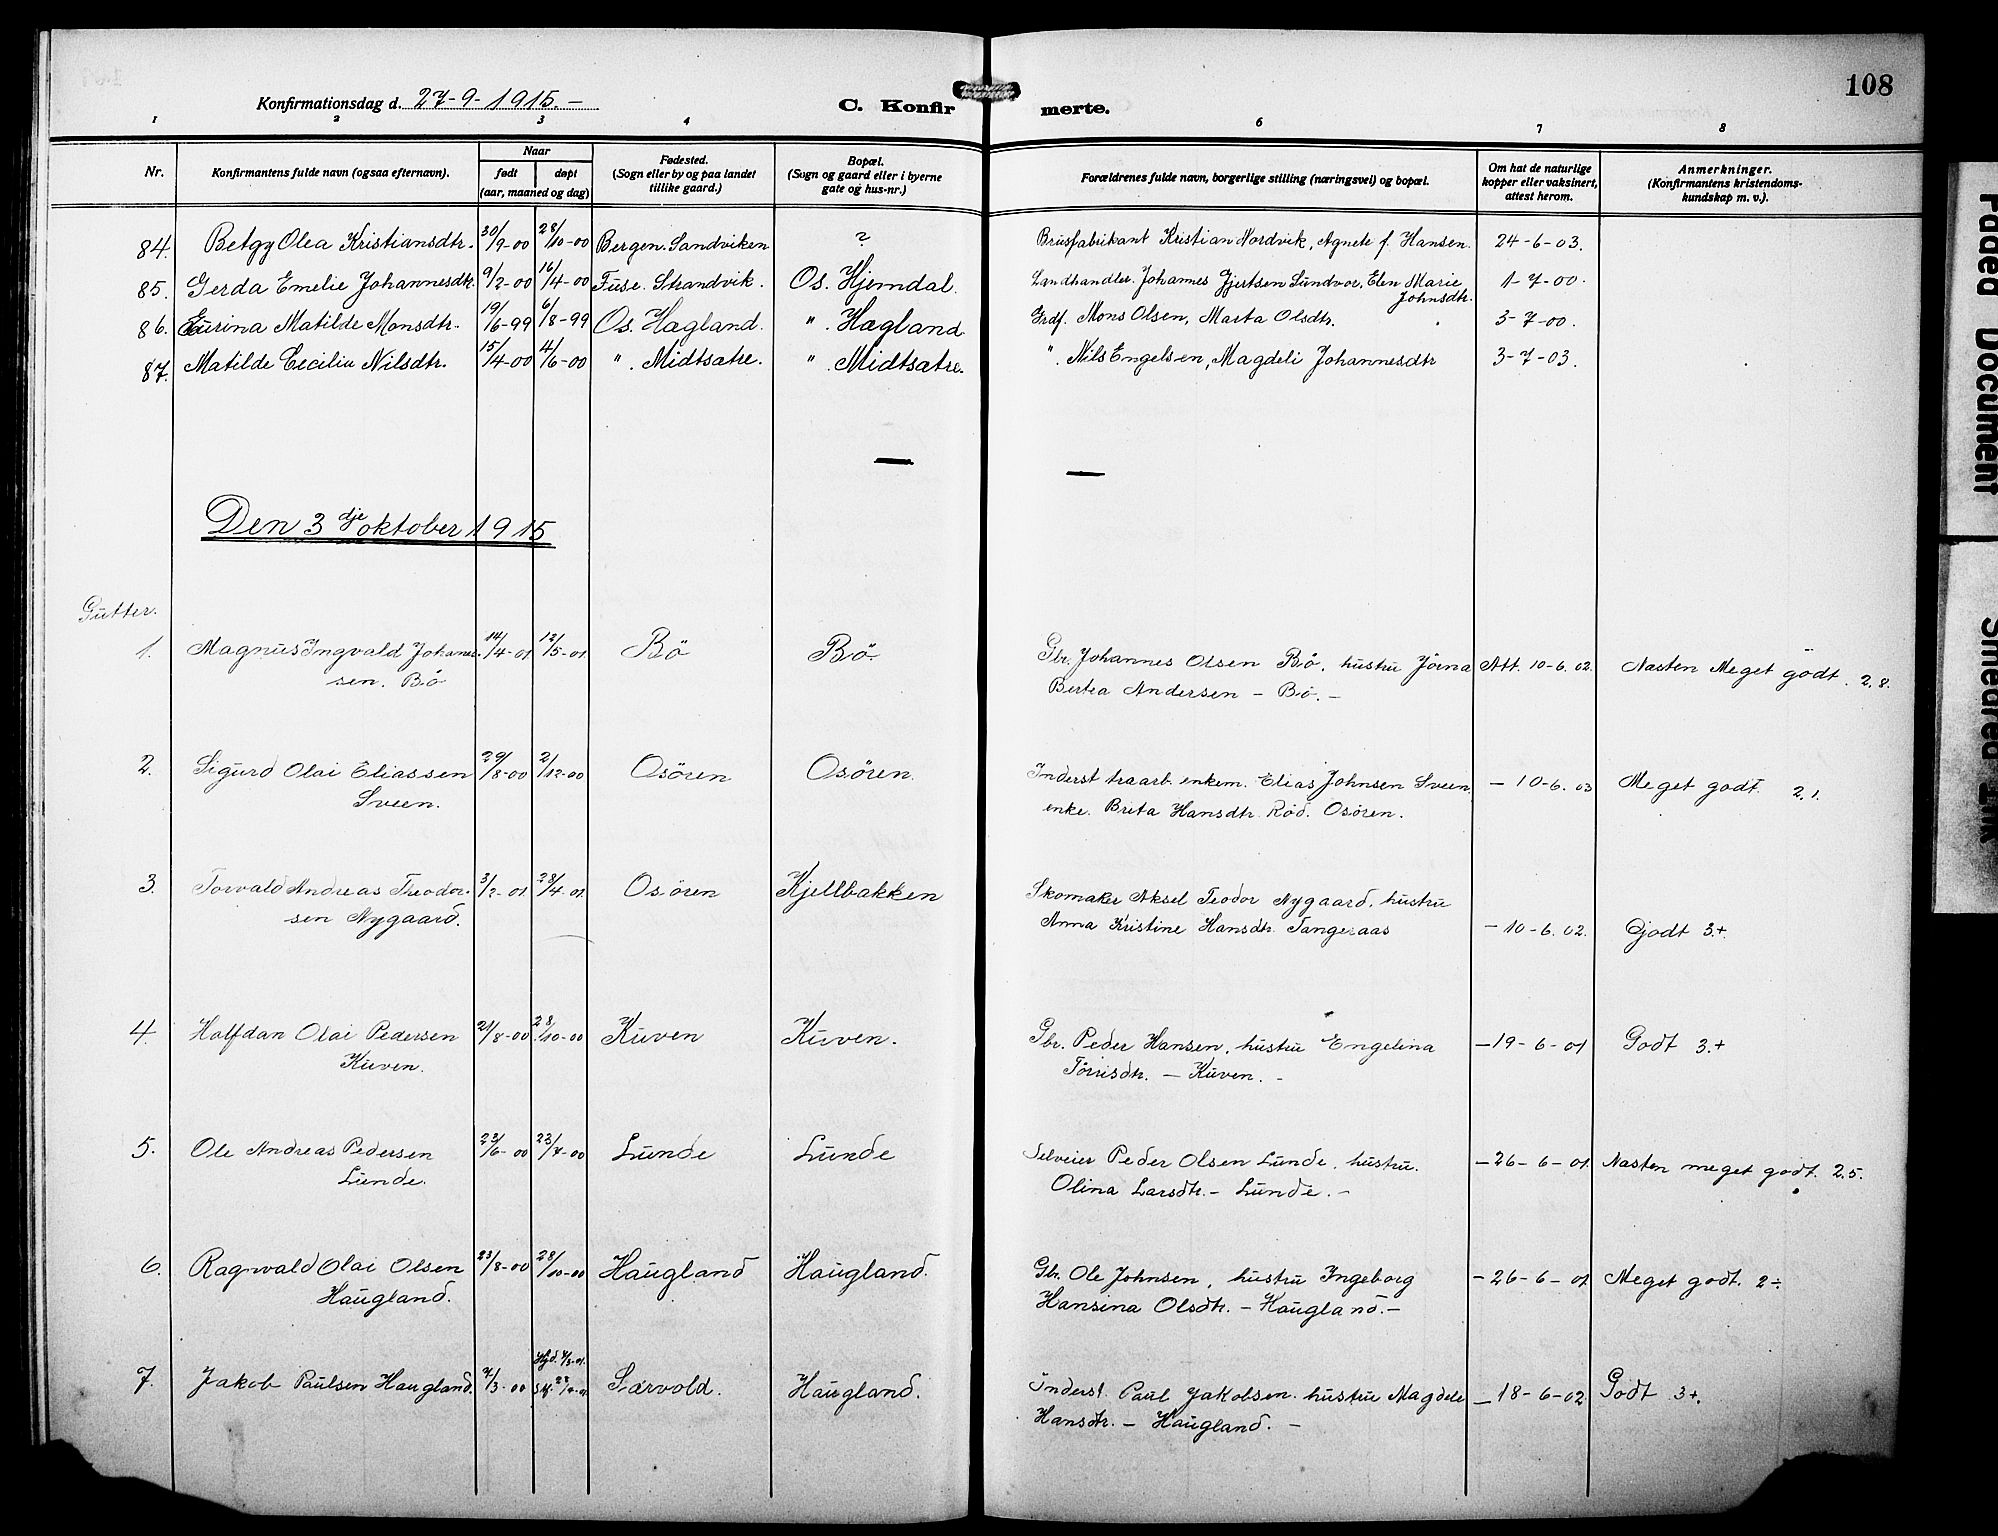 108
Konfirmationsdag d. 27-9-1915.-
C. Konfir merte.
1 2 3 4 5 6 7 8
Nr.
Konfirmantens fulde navn (ogsaa efternavn).
Naar
født døpt
(aar, maaned og dag)
Fødested.
(Sogn eller by og paa landet
tillike gaard.)
Bopæl.
(Sogn og gaard eller i byerne
gate og hus-nr.)
Forældrenes fulde navn, borgerlige stilling (næringsvei) og bopæl.
Om hat de naturlige
kopper eller vaksinert,
attest herom.
Anmerkninger.
(Konfirmantens kristendoms-
kundskap m. v.).
84. Betgy Olea Kristiansdtr. 30/9-00 28/10-00 Bergen. Sandviken ? Brusfabrikant Kristian Nordvik, Agnete f. Hansen. 24-6-03.
85. Gerda Emelie Johannesdtr. 9/2-00 16/4-00 Fuse. Strandvik. Os. Hjemdal. Landhandler Johannes Gjertsen Sundvor, Elen Marie 1-7-00.
Johnsdtr.
86. Eurina Matilde Monsdtr. 19/6-99 6/8-99 Os. Hægland. ". Hægland. Grdf. Mons Olsen, Marta Olsdtr. 3-7-00.
87. Matilde Cecilia Nilsdtr. 15/4-00 4/6-00 ". Midtsætre. ". Midtsætre. ". Nils Engelsen, Magdeli Johannesdtr 3-7-03.
Den 3dje oktober 1915
Gutter.
1. Magnus Ingvald Johannes- 14/4-01 12/5-01 Bö Bö. Gbr. Johannes Olsen Bö. hustru Jörna Att. 10-6.02. Næsten Meget godt. 2.8.
sen. Bö Bertea Andersen - Bö. -
2. Sigurd Olai Eliassen 29/8-00 2/12-00 Osören Osören. Inderst traarb. enkem. Elias Johnsen Sveen. - 10-6.03 Meget godt. 2.1.
Sveen. enke. Brita Hansdtr. Röd. Osören.
3. Torvald Andreas Theodor- 3/2-01 28/4-01 Osören Kjellbakken Skomaker Aksel Teodor Nygaard. hustru
sen Nygaard. Anna Kristine Hansdtr. Tangeraas - 10-6.02. Godt 3.+
4. Halfdan Olai Pedersen 21/8-00 28/10-00 Kuven Kuven. Gbr. Peder Hansen, hustru Engelina - 19-6-01 Godt 3.+
Kuven. Törrisdtr. - Kuven. -
5. Ole Andreas Pedersen 23/6-00 23/7-00 Lunde Lunde Selveier Peder Olsen Lunde, hustru. - 26-6-01. Næsten meget godt. 2.5.
Lunde. Olina Larsdtr. - Lunde. -
6. Ragnvald Olai Olsen 23/8-00 28/10-00 Haugland Haugland. Gbr. Ole Johnsen, hustru Ingeborg - 26-6-01. Meget godt. 2÷
Haugland. Hansina Olsdtr. - Haugland. -
7. Jakob Paulsen Haugland. Særvold. Haugland. Inderst. Paul Jakobsen. hustru Magdele - 18-6-02. Godt 3+.
Hansdtr. - Haugland. -
Faded Document